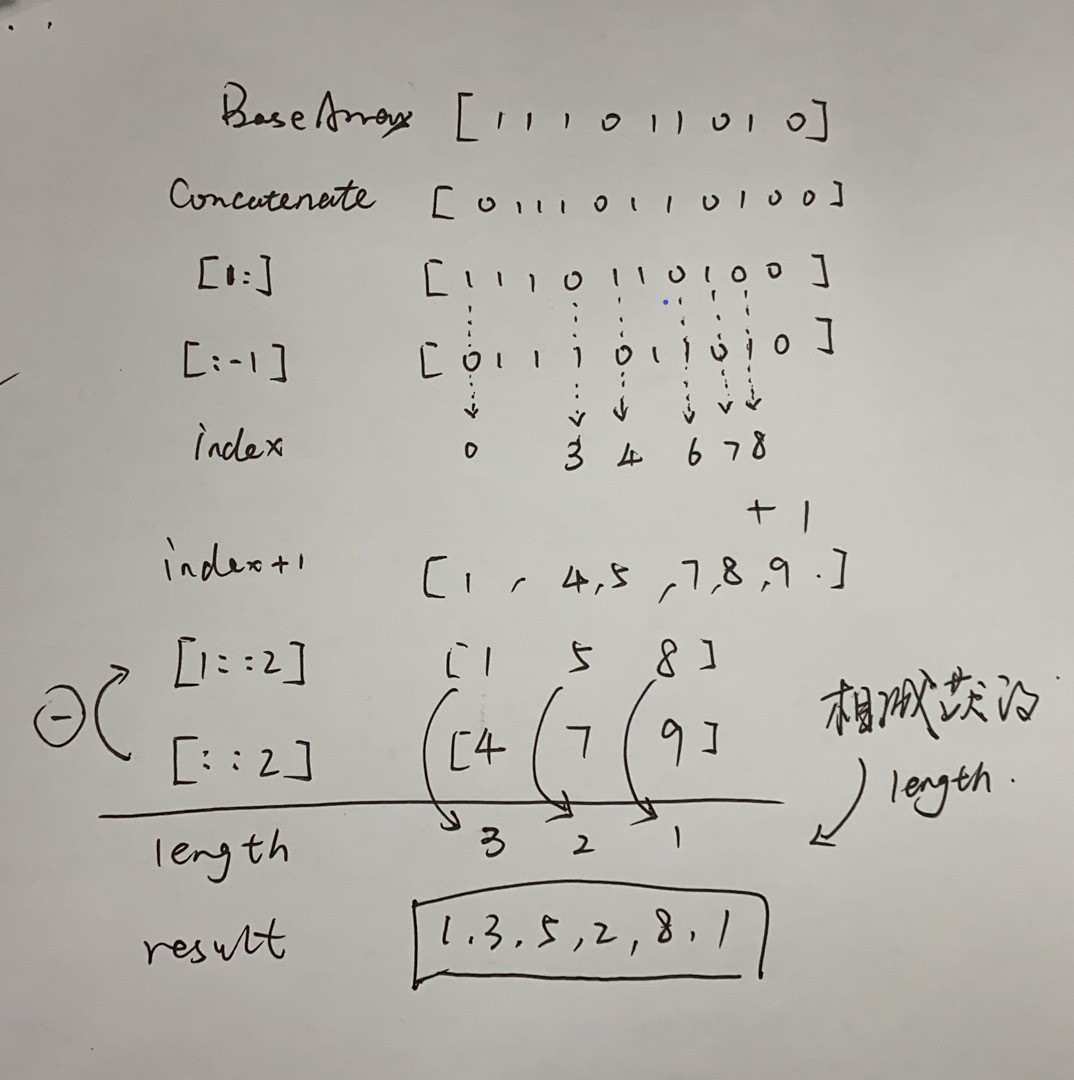 BaseArray [ 1 1 1 0 1 1 0 1 0 ]
Concatenate [ 0 1 1 1 0 1 1 0 1 0 0 ]
[1:] [ 1 1 1 0 1 1 0 1 0 0 ]
[:-1] [ 0 1 1 1 0 1 1 0 1 0 ]
index 0 3 4 6 7 8
+ 1
index+1 [ 1 , 4,5 ,7,8,9 .]
[1::2] [1 5 8]
⊖
[::2] [4 7 9]
相减获得
length.
length 3 2 1
result 1.3.5,2,8.1